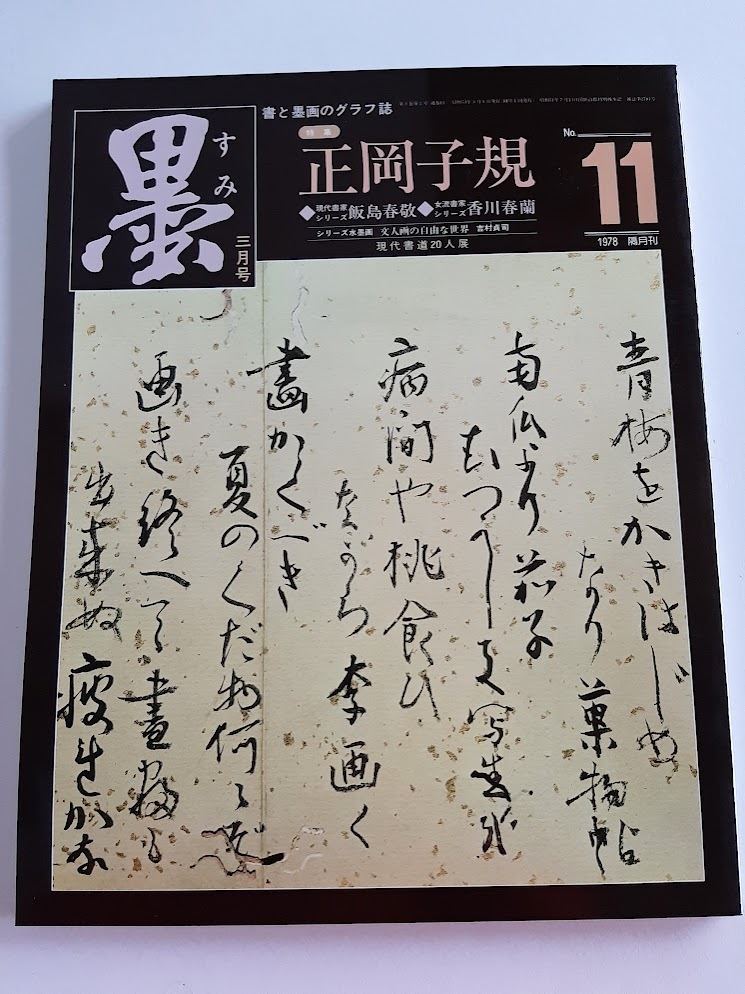 書と墨画のグラフ誌
墨
すみ
三月号
特集
正岡子規
No. 11
◆現代書家シリーズ 飯島春敬 ◆女流書家シリーズ 香川春蘭
シリーズ水墨画 文人画の自由な世界 吉村貞司
現代書道20人展
1978 隔月刊
青梅をかきはじめ
なり菓物帖
南瓜より茄子
むつかしき写生哉
病間や桃食ひ
ながら李画く
畫かくべき
夏のくだ物何々ぞ
画き終へて晝寝も
出来ぬ疲れかな